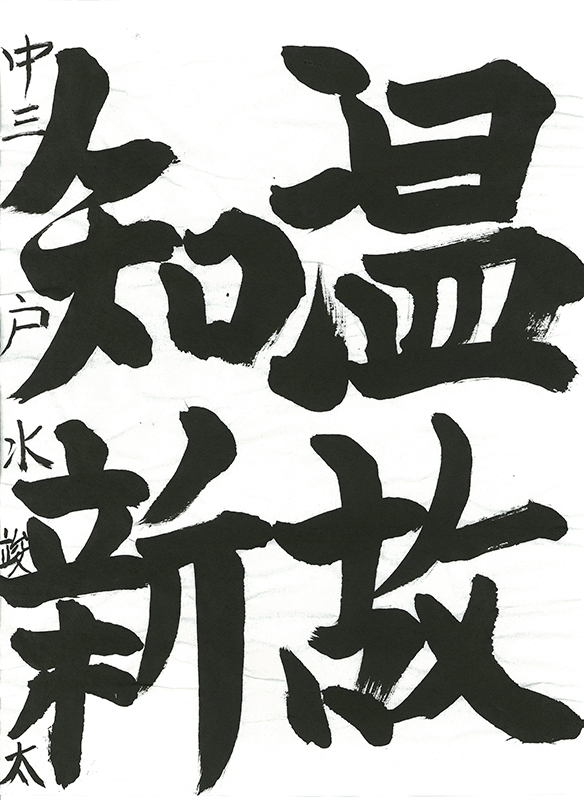 温故
知新
中三 戸水 竣太